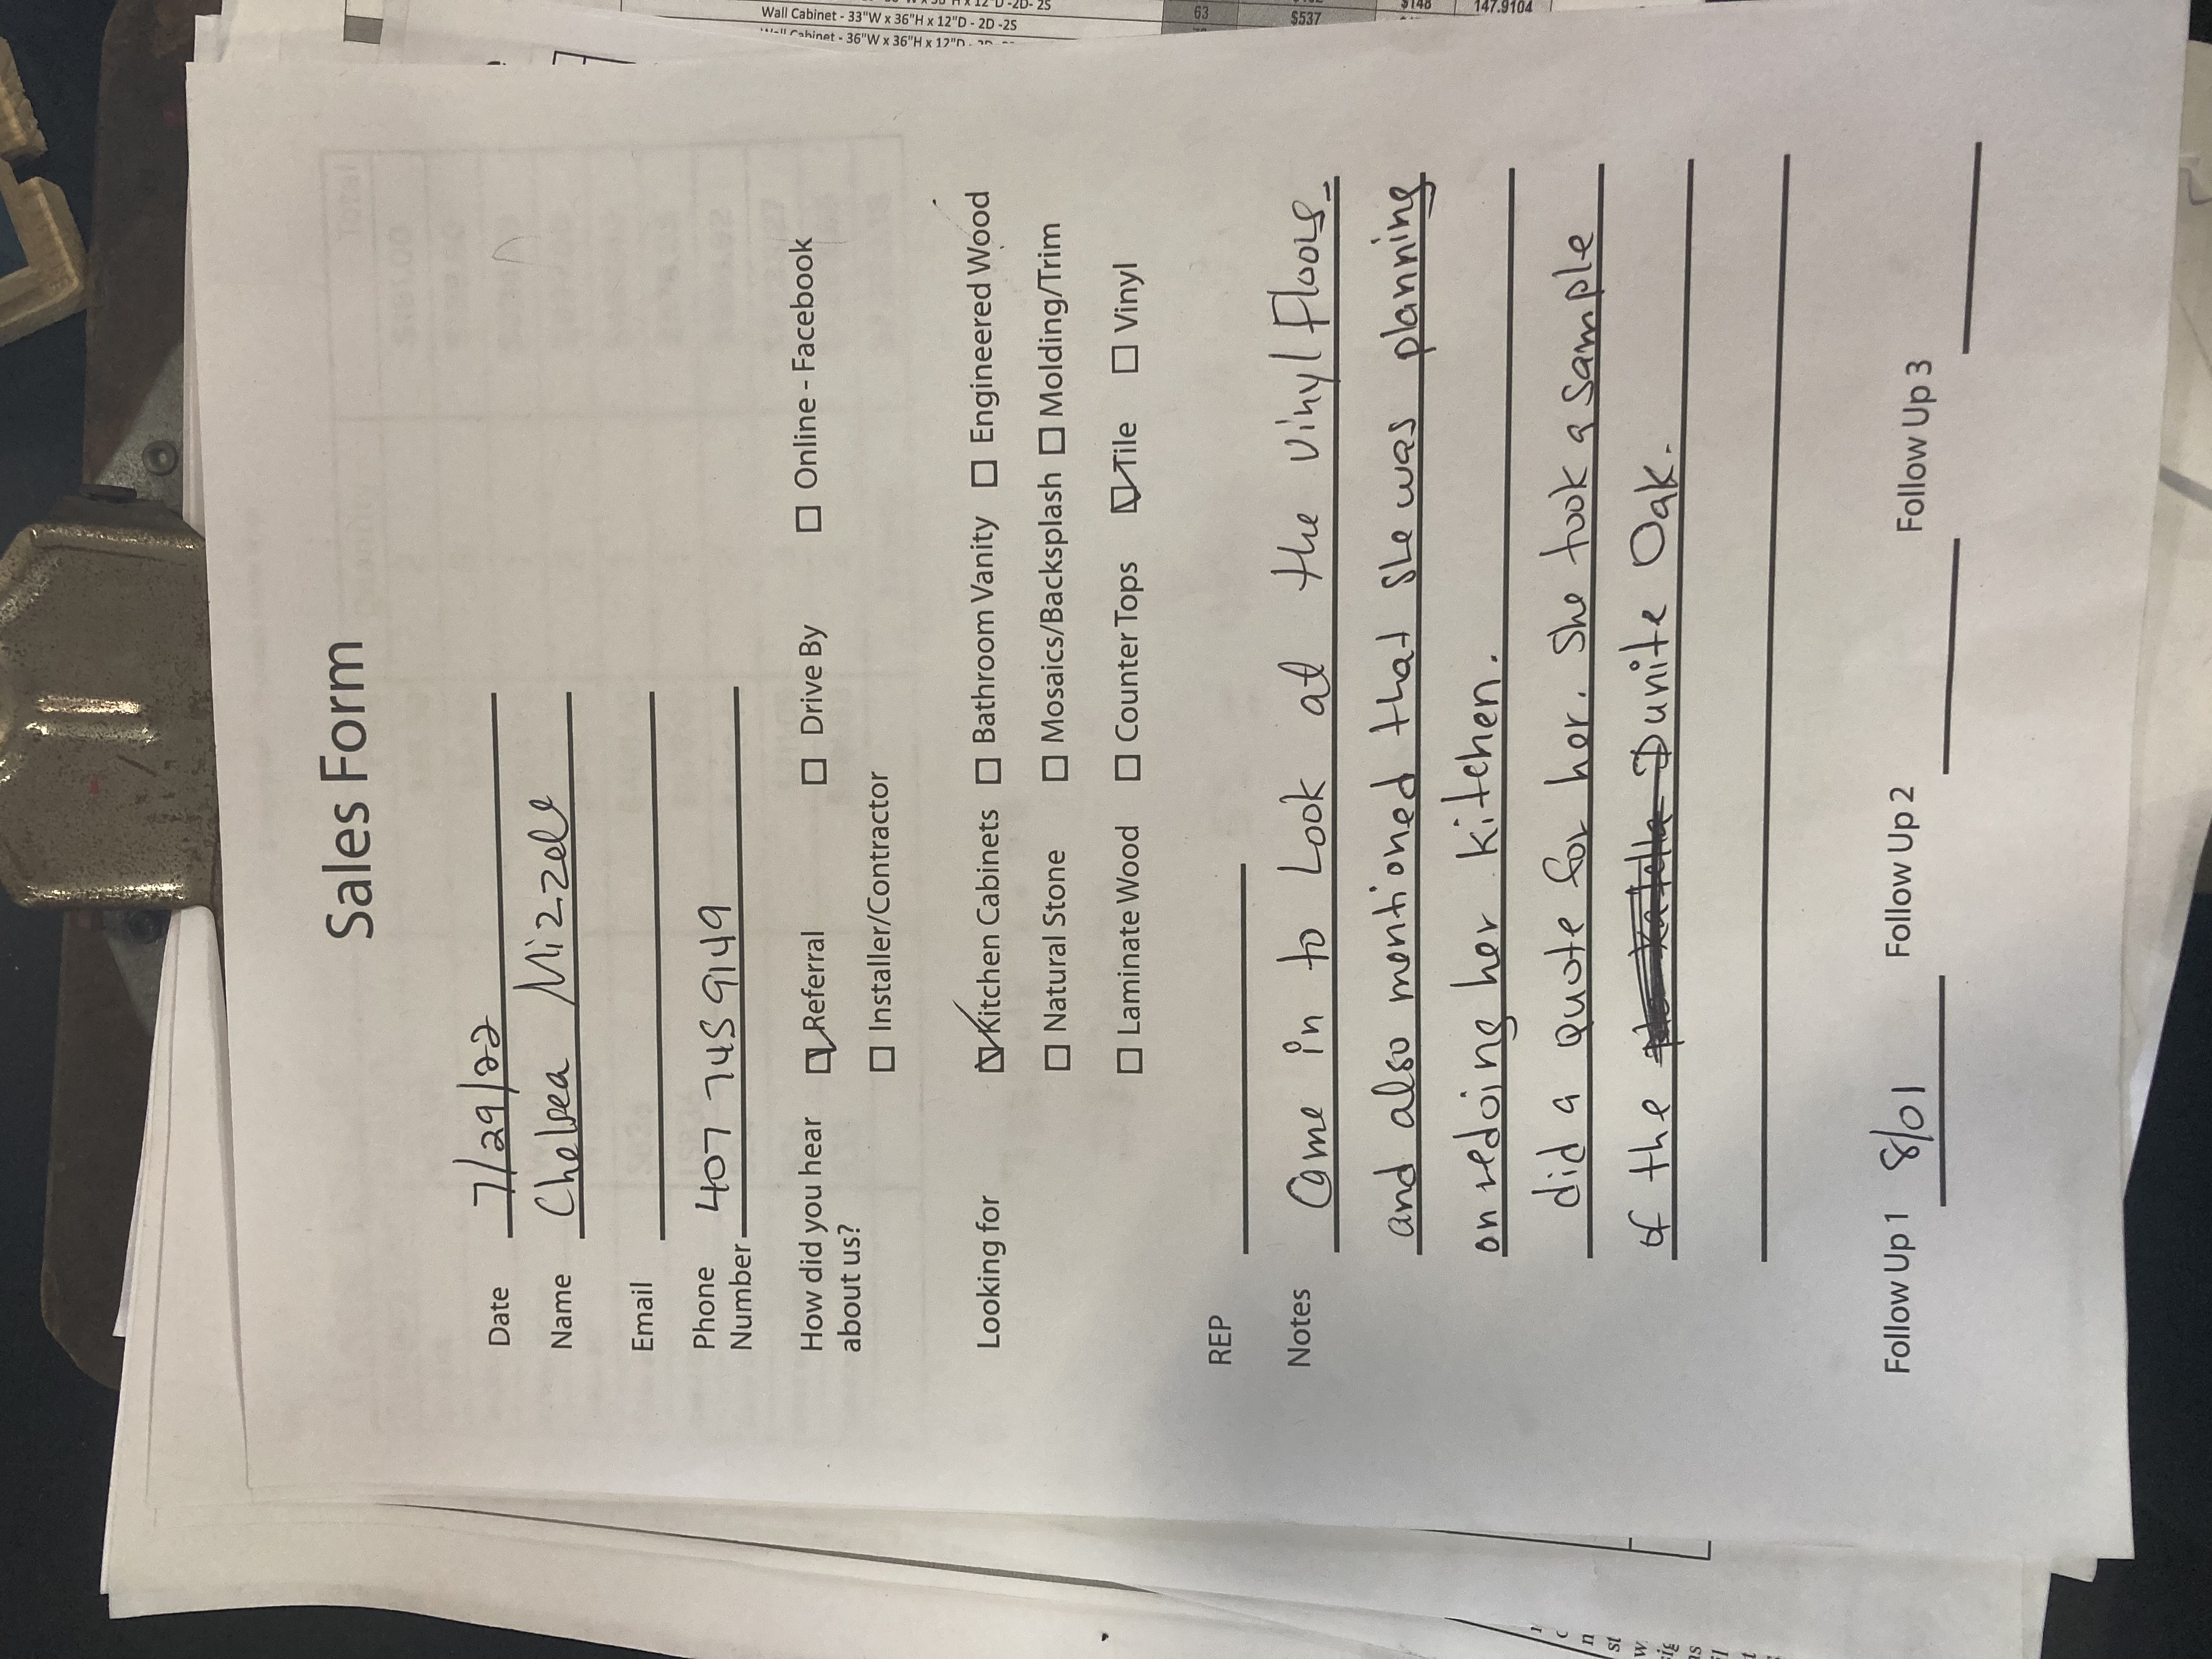 Wall Cabinet - 33"W x 36"H x 12"D - 2D -2S 63 $537
Wall Cabinet - 36"W x 36"H x 12"D
$148 147.9104
Sales Form
Date 7/29/22
Name Chelsea Mizzell
Email
Phone Number 407 745 9149
How did you hear about us? ☑ Referral ☐ Drive By ☐ Online - Facebook
☐ Installer/Contractor
Looking for ☑ Kitchen Cabinets ☐ Bathroom Vanity ☐ Engineered Wood
☐ Natural Stone ☐ Mosaics/Backsplash ☐ Molding/Trim
☐ Laminate Wood ☐ Counter Tops ☑ Tile ☐ Vinyl
REP
Notes Came in to Look at the vinyl Floors
and also mentioned that she was planning
on redoing her kitchen.
did a quote for her. She took a sample
of the Dunite Oak.
Follow Up 1 8/01 Follow Up 2 Follow Up 3